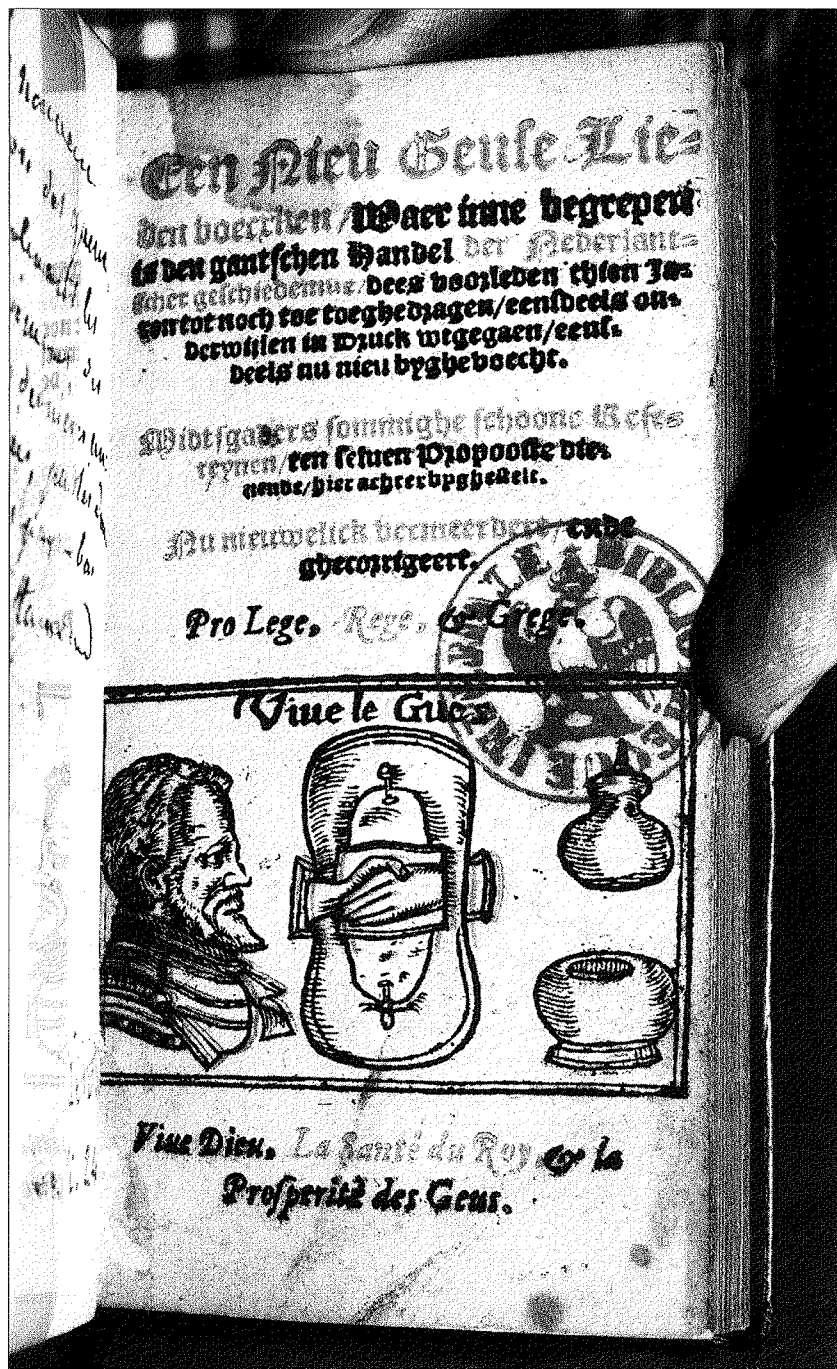 Een Nieu Geuse Lie=
den boecxken / Waer inne begrepen
is den gantschen Handel der Nederlant=
scher geschiedenisse / dees voorleden thien Ja=
ren tot noch toe toeghedragen / eensdeels on=
derwijlen in Druck wtgegaen / eens=
deels nu nieu byghevoecht.
Midtsgaders sommighe schoone Refe=
reynen / ten selven Propooste die=
nende / hier achter byghestelt.
Nu nieuwelick vermeerdert / ende
ghecorrigeert.
Pro Lege, Rege, & Grege.
BIBLIO
Viue le Gues
Viue Dieu. La Santé du Roy & la
Prosperité des Geus.